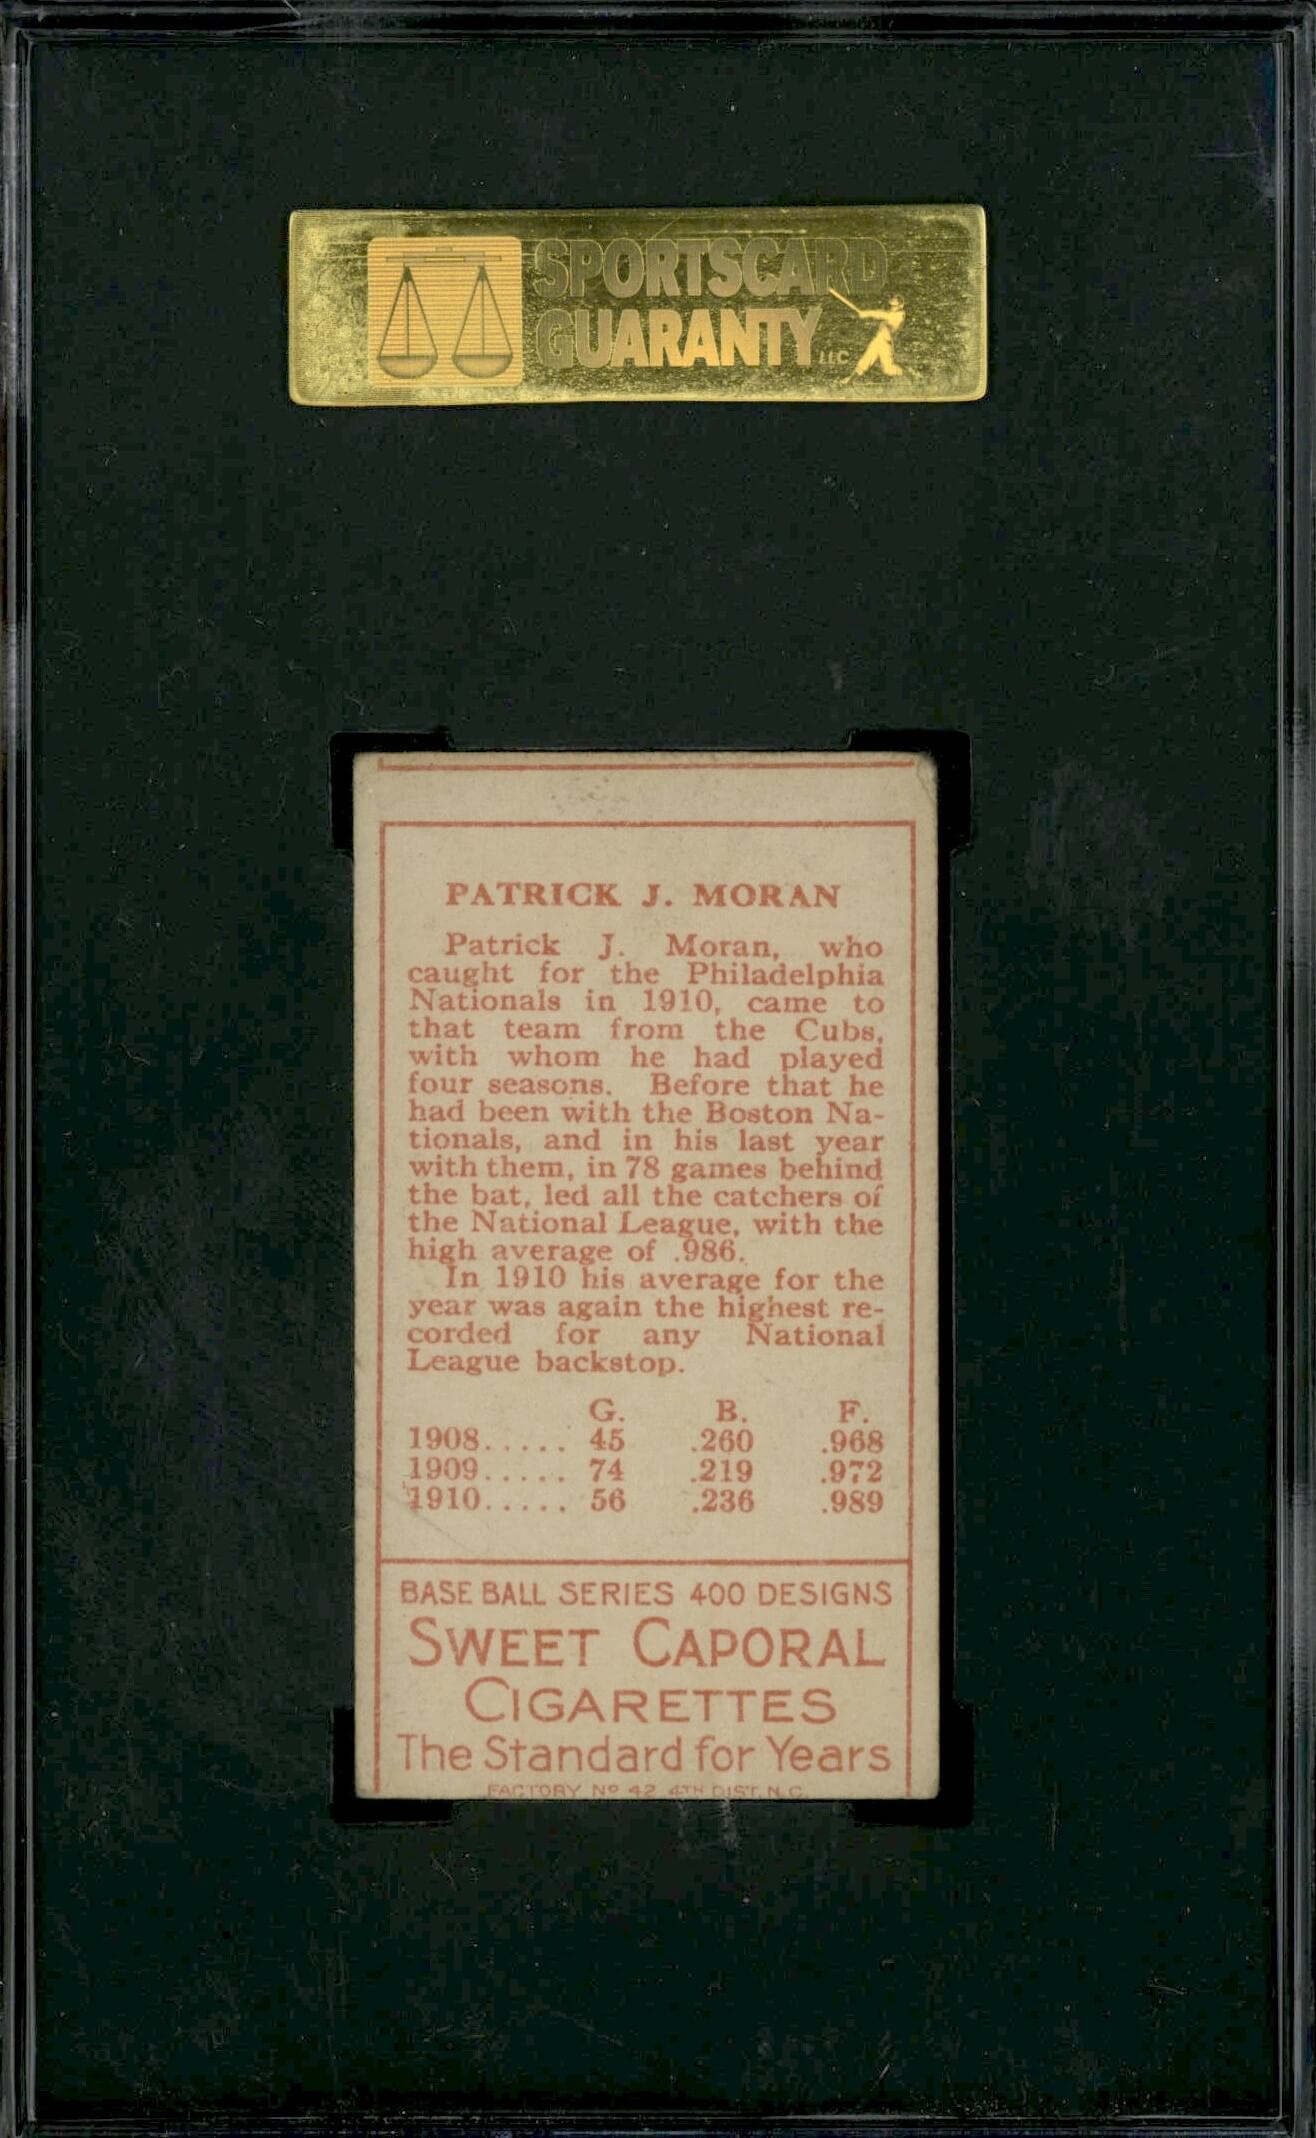 SPORTSCARD
GUARANTY LLC
PATRICK J. MORAN
Patrick J. Moran, who
caught for the Philadelphia
Nationals in 1910, came to
that team from the Cubs,
with whom he had played
four seasons. Before that he
had been with the Boston Na-
tionals, and in his last year
with them, in 78 games behind
the bat, led all the catchers of
the National League, with the
high average of .986.
In 1910 his average for the
year was again the highest re-
corded for any National
League backstop.
G. B. F.
1908..... 45 .260 .968
1909..... 74 .219 .972
1910..... 56 .236 .989
BASE BALL SERIES 400 DESIGNS
SWEET CAPORAL
CIGARETTES
The Standard for Years
FACTORY Nº 42 4TH DIST. N.C.